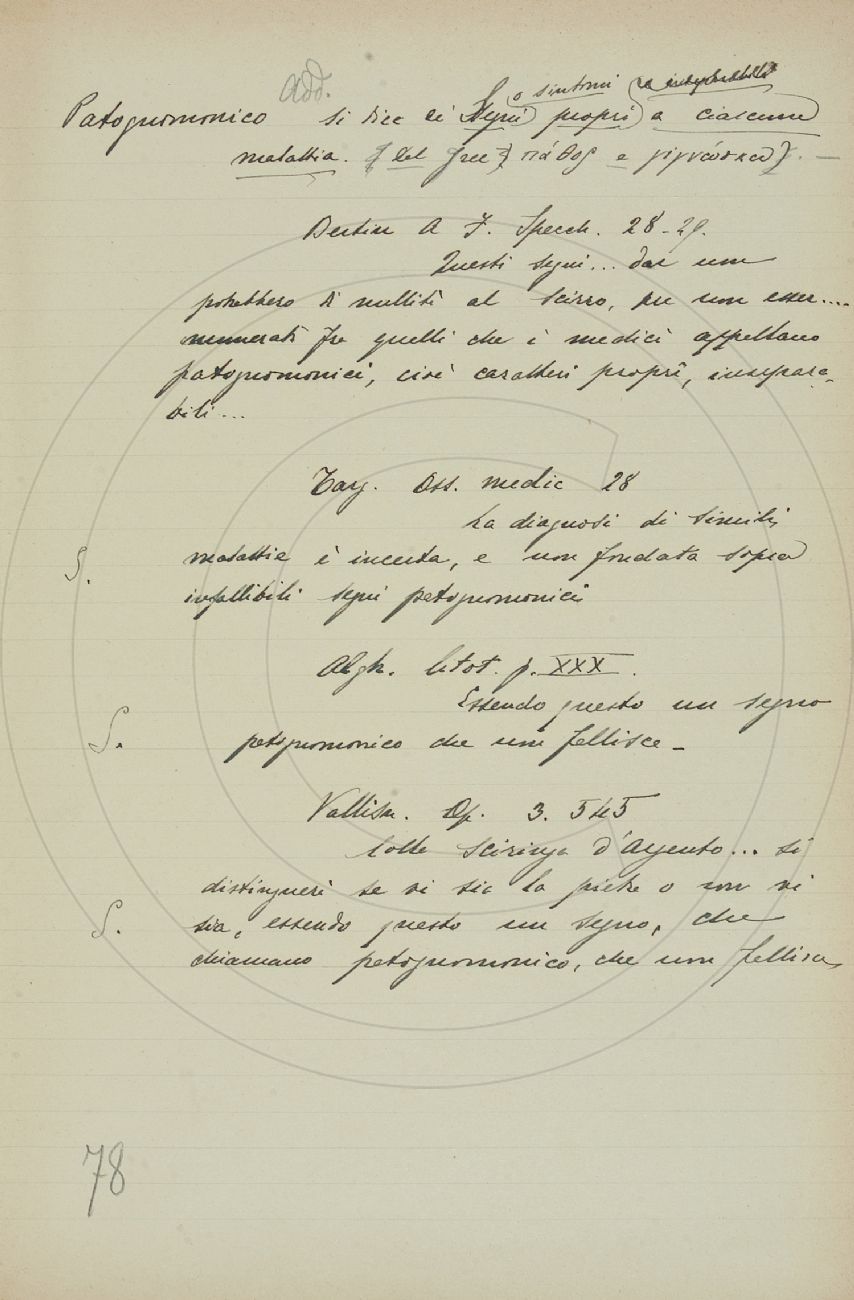 Add.
o sintomi e inseparabili
Patognomonico si dice di segni propri a ciascuna
malattia. [Dal grec. πάθος e γιγνώσκω]. —
Bertin A F. Specch. 28-29.
Questi segni... dar non
potrebbero di nullità al scirro, per non esser....
numerati fra quelli che i medici appellano
patognomonici, cioè caratteri proprî, insepara-
bili...
Targ. Oss. medic 28
La diagnosi di simili
S. malattie è incerta, e non fondata sopra
infallibili segni patognomonici
Algh. Litot. p. XXX.
Essendo questo un segno
S. patognomonico che non fallisce -
Vallisn. Op. 3. 545
Colla Sciringa d'Argento... si
distinguerà se vi sia la pietra o non vi
S. sia, essendo questo un segno, che
chiamano patognomonico, che non fallisce,
78